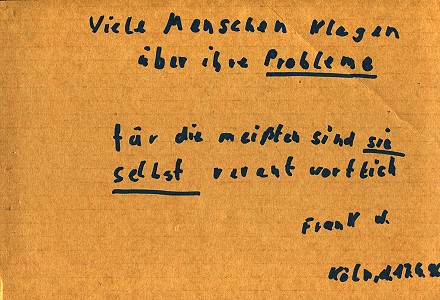 Viele Menschen klagen
über ihre Probleme
für die meißten sind sie
selbst verantwortlich
Frank d.
Köln, d.